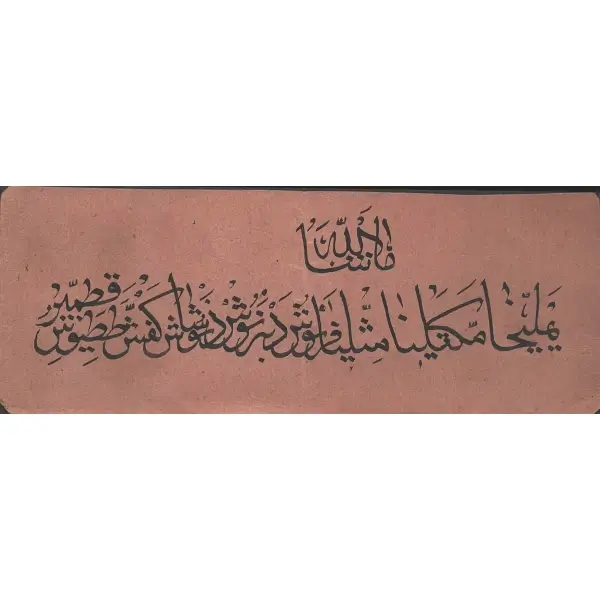 ما شاء الله
يمليخا مكثلينا مثلينا مرنوش دبرنوش شاذنوش كفشططيوش قطمير